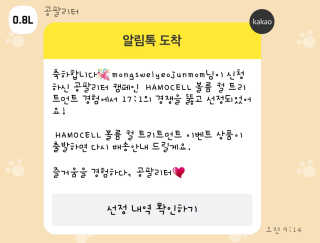 공팔리터
0.8L
kakao
알림톡 도착
축하합니다💐 mongsweiyeojunmom님이 신청
하신 공팔리터 캠페인 HAMOCELL 볼륨 컬 트리
트먼트 경험에서 17:1의 경쟁을 뚫고 선정되었어
요!
HAMOCELL 볼륨 컬 트리트먼트 이벤트 상품이
출발하면 다시 배송안내 드릴게요.
즐거움을 경험하다. 공팔리터💖
선정 내역 확인하기
오전 9:14